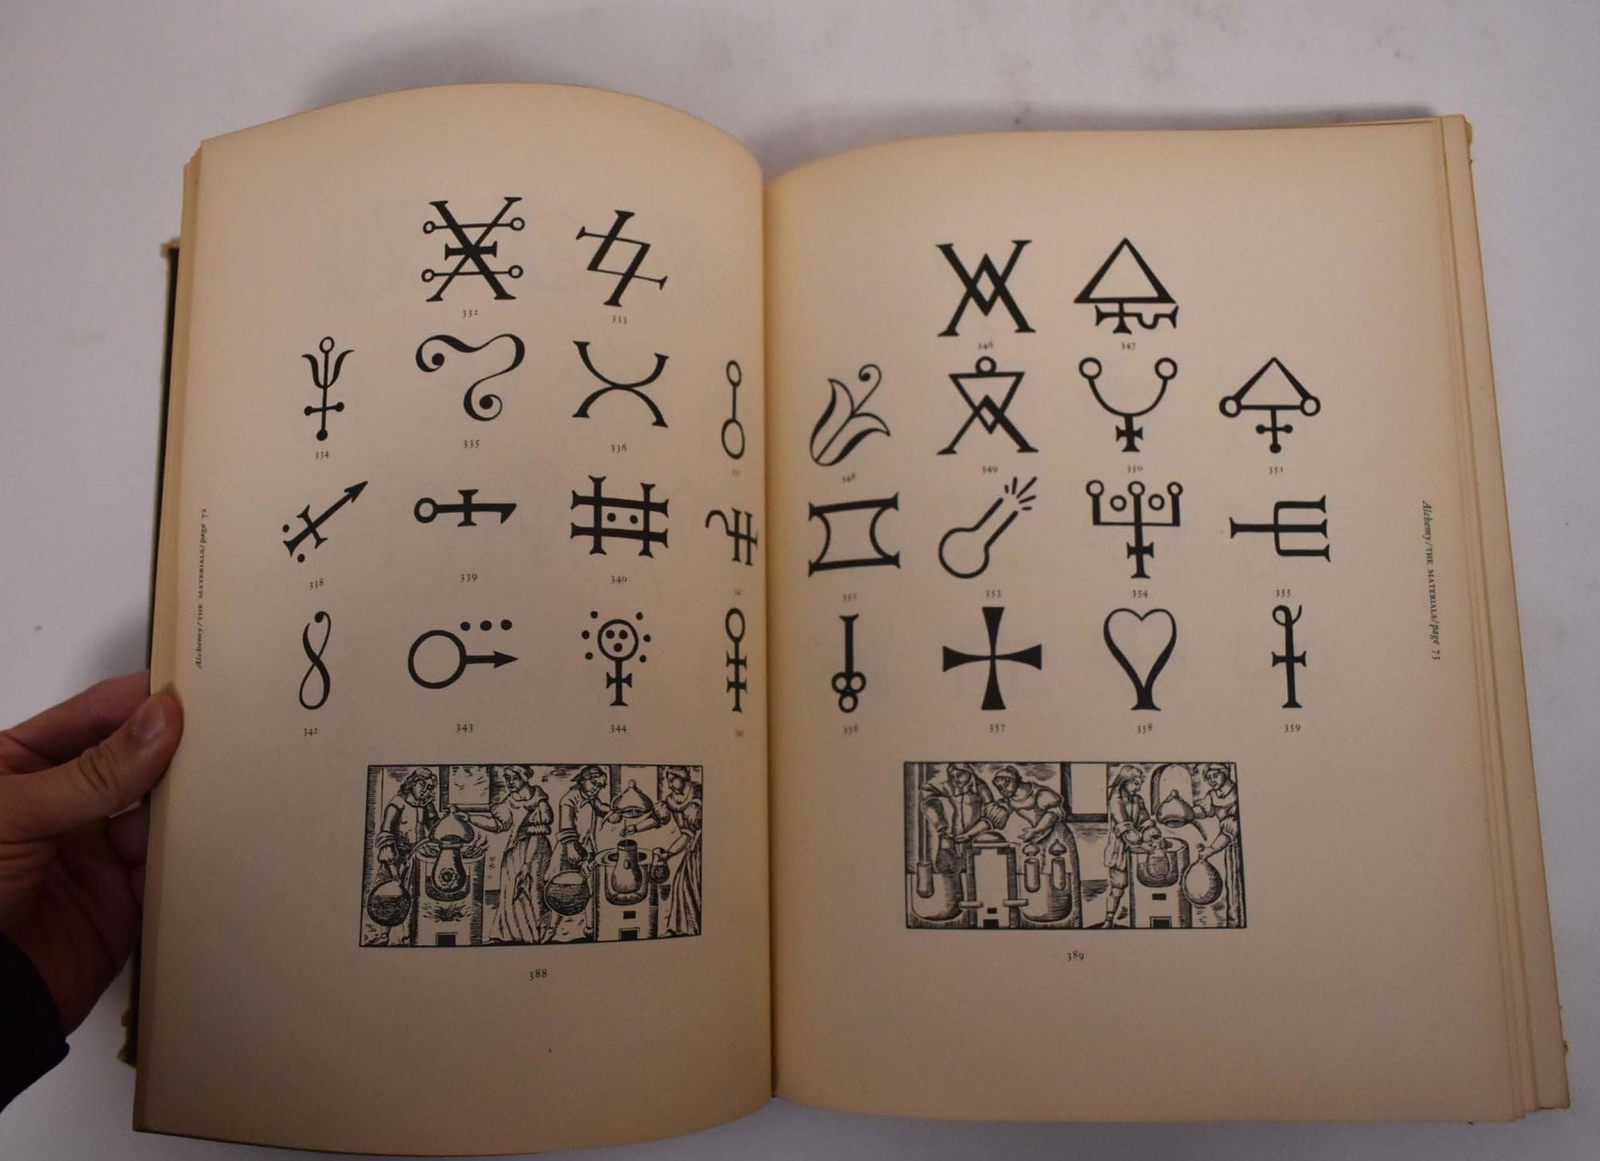 332 333
334 335 336
338 339 340
342 343 344
388
Alchemy/THE MATERIALS/page 72
346 347
348 349 350 351
352 353 354 355
356 357 358 359
389
Alchemy/THE MATERIALS/page 73